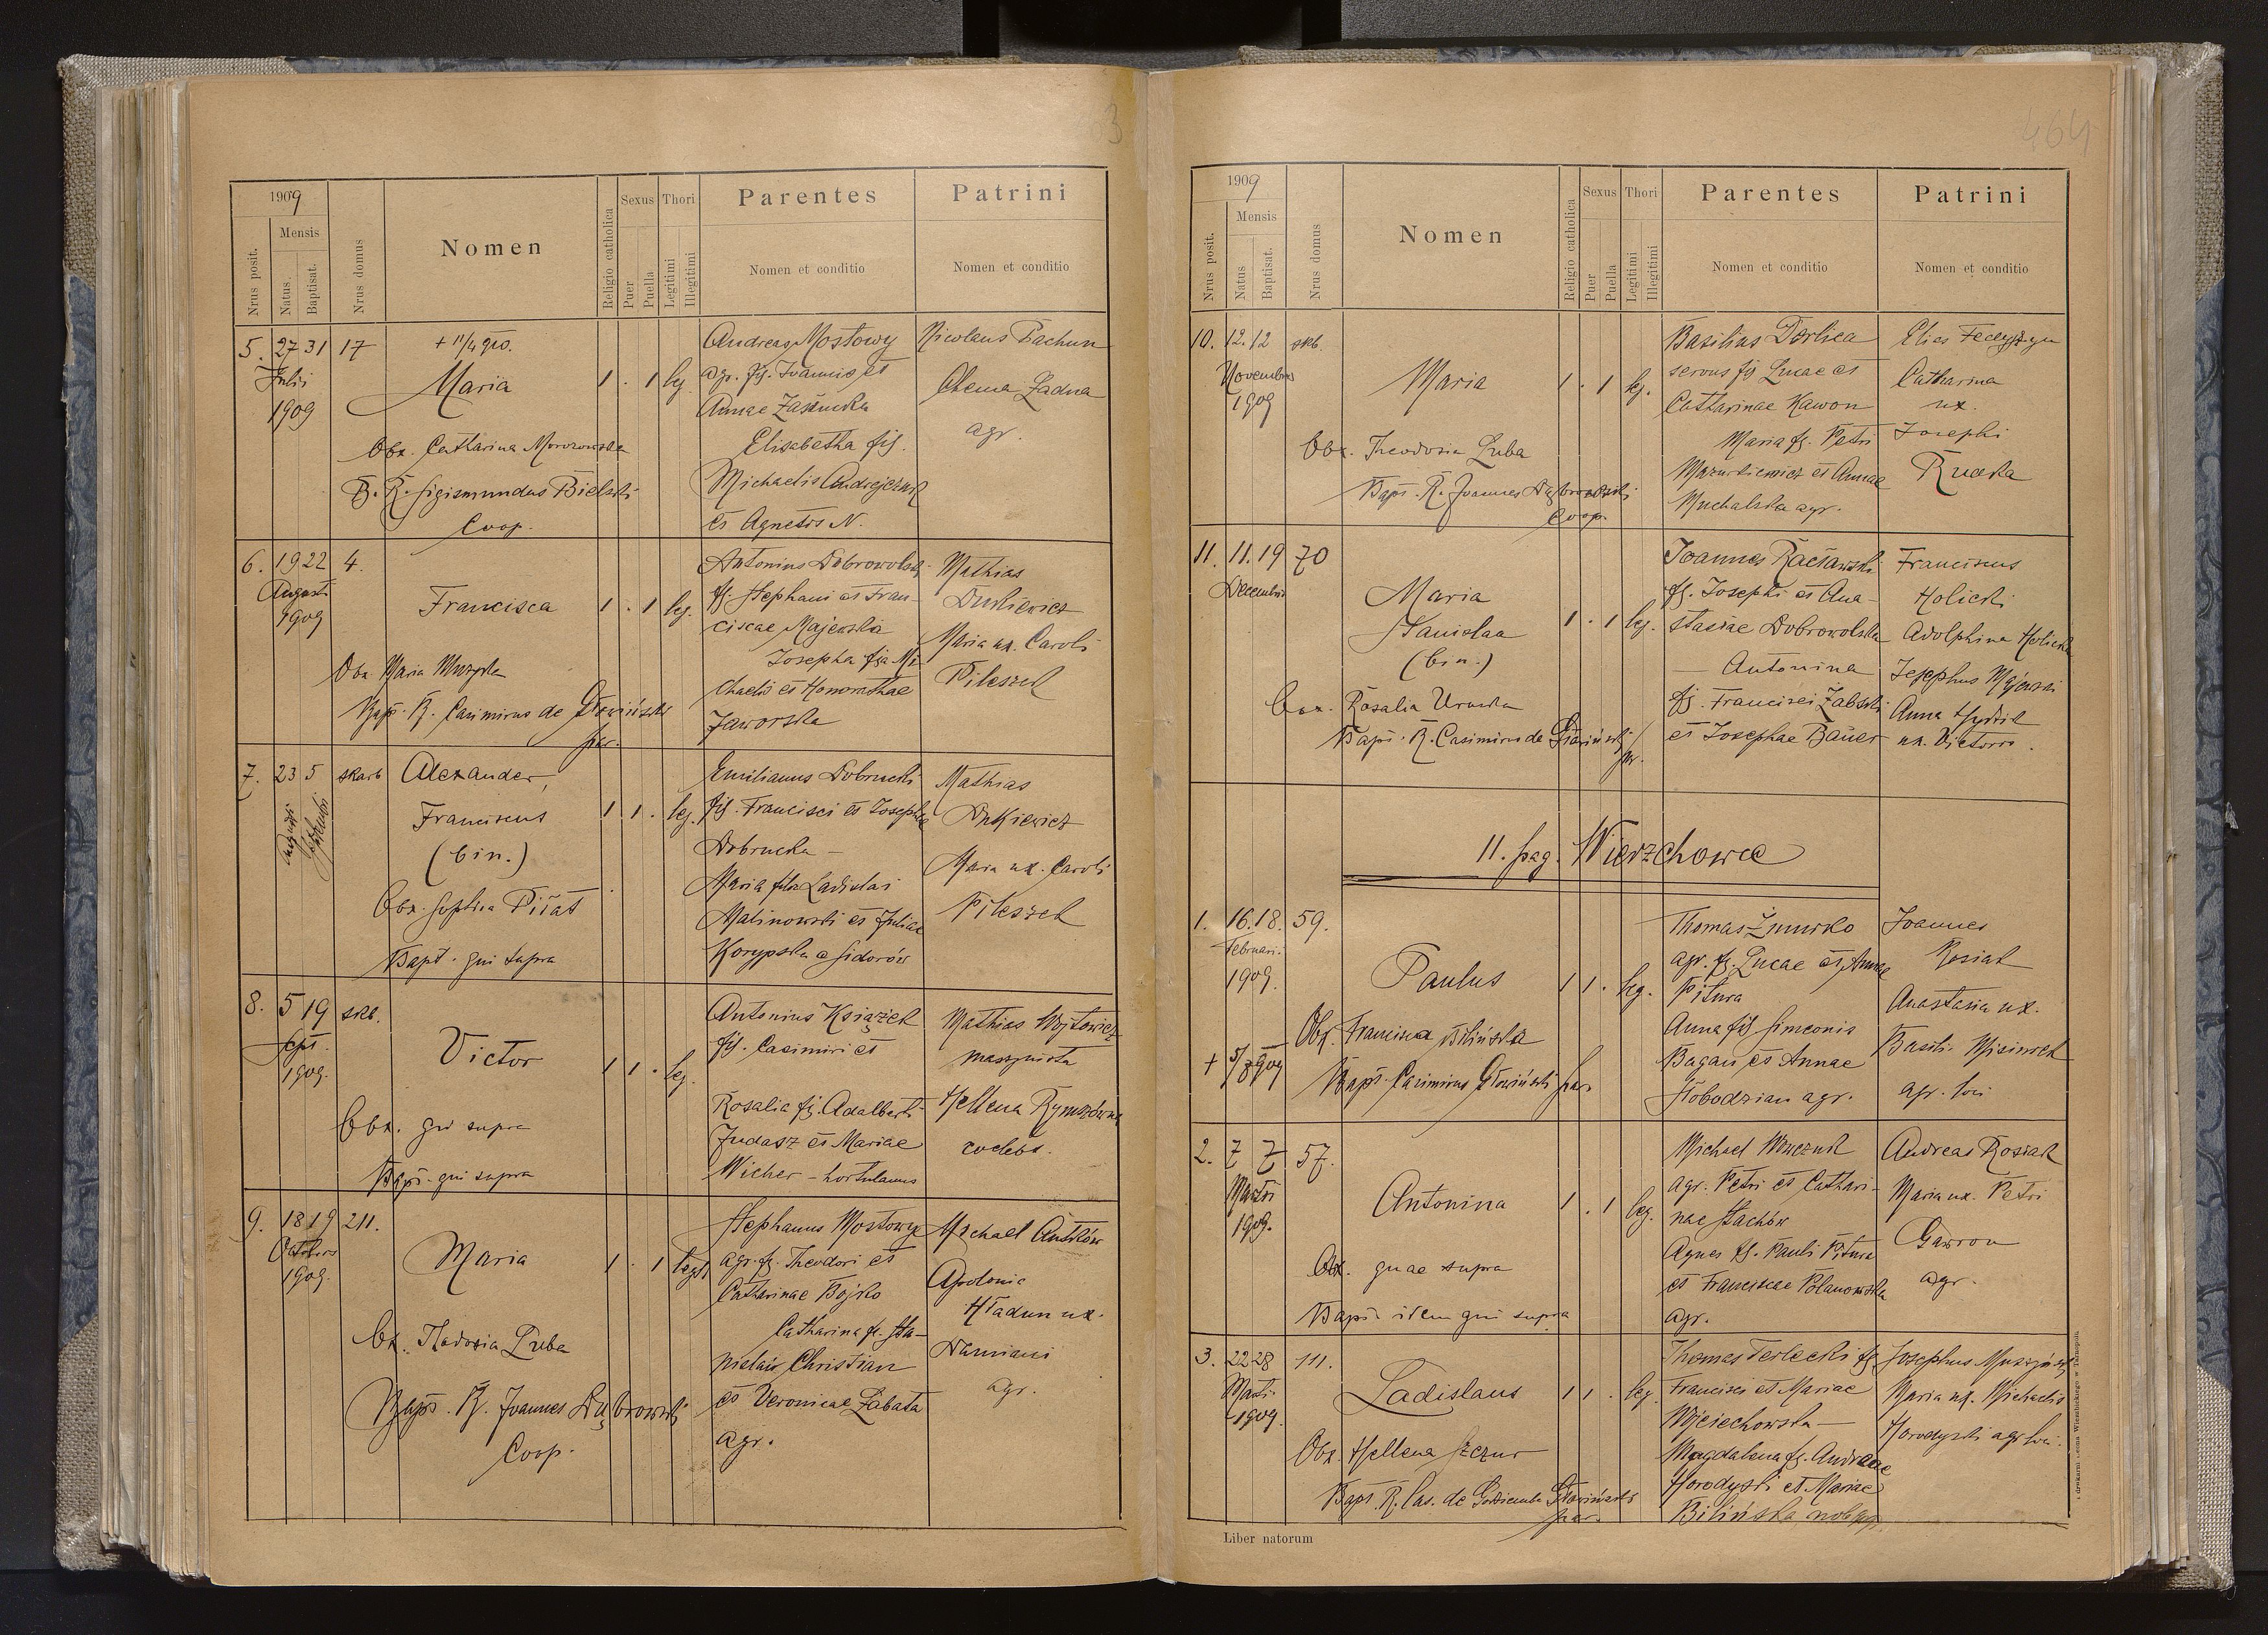 464
1909
Nrus posit.
Mensis
Natus.
Baptisat.
Nrus domus
Nomen
Religio catholica
Sexus
Puer
Puella
Thori
Legitimi
Illegitimi
Parentes
Nomen et conditio
Patrini
Nomen et conditio
5. 27 31 17
Julii
1909
Maria
1 . 1 leg
Obx. Catharina Morozowska
B. R. Sigismundus Bielski
Coop.
Andreas Mostowy
agr. fil. Joannis et
Annae
Elisabetha fil.
Michaelis Andrejczuk
et Agnetis N.
Nicolaus Pachun
Ladna
agr.
6. 19 22 4.
Augusti
1909
Francisca
1 . 1 leg.
Obx Maria Muzyka
Bapt. R. Casimirus de Głowiński
par.
Antonius Dobrowolski
fil. Stephani et Fran-
ciscae Majewska
Josepha fia Mi-
chaelis et Honorathae
Jaworska
Mathias
Dutkiewicz
Maria ux. Caroli
Pileszek
7. 23 5 skarb
Augusti
Septembris
Alexander,
Franciscus
(bin.)
1 1 . leg.
Obx. Sophia Pirat
Bapt. qui supra
Emilianus Dobrucki
fil. Francisci et Josephae
Dobrucka –
Maria fila Ladislai
Malinowski et Juliae
Korypska a Sidorów
Mathias
Dutkiewicz
Maria ux. Caroli
Pileszek
8. 5 19 skb.
Sept.
1909.
Victor
1 1 . leg.
Obx. qui supra
Bapt. qui supra
Antonius Książek
fil. Casimiri et
Rosalia fil. Adalberti
Judasz et Mariae
Wicher – hortulanus
Mathias Wojtowicz
maszynista
Hellena
coelebs.
9. 18 19 211.
Octobris
1909.
Maria
1 . 1
Obx. Theodosia Luba
Bapt. R. Joannes Dąbrowski
Coop.
Stephanus Mostowy
agr. fil. Theodori et
Catharinae Bojko
Catharina fil. Sta-
nislai Christian
et Veronicae Zabata
agr.
Michael Antków
Apolonia
Hładun ux.
Damiani
agr.
1909
Nrus posit.
Mensis
Natus
Baptisat.
Nrus domus
Nomen
Religio catholica
Sexus
Puer
Puella
Thori
Legitimi
Illegitimi
Parentes
Nomen et conditio
Patrini
Nomen et conditio
10. 12. 12 skb.
Novembris
1909
Maria
1 . 1 leg.
Obx. Theodosia Luba
Bapt. R. Joannes Dąbrowski
Coop.
Basilius Derlica
servus fil Lucae et
Catharinae Kawon
Maria fil. Petri
Mazurkiewicz et Annae
Muchalska agr.
Elias
Catharina
ux.
Josephi
Rucka
11. 11. 19 70
Decembris
Maria
Stanislaa
(bin.)
1 . 1 leg.
Obx. Rosalia
Bapt. R. Casimirus de Głowiński
par.
Joannes Racławski
fil. Josephi et Ana-
stasiae Dobrowolska
– Antonina
fil. Francisci Zabski
et Josephae Bauer
Franciscus
Holicki
Adolphina Holicka
Josephus Majewski
Anna
ux. Victoris.
11. pag. Wierzchowce
1. 16. 18. 59.
Februari.
1909.
Paulus
1 1 . leg.
Obx. Francisca Bilińska
Bapt. Casimirus Głowiński par.
Thomas Żmurko
agr. fil. Lucae et Annae
Pitura
Anna fil Simeonis
Bagan et Annae
Słobodzian agr.
Joannes
Rosiak
Anastasia ux.
Basili
agr. loci
2. 7 7 57.
Martii
1909.
Antonina
1 . 1 leg.
Obx. quae supra
Bapt. idem qui supra
Michael Wawczuk
agr. Petri et Cathari-
nae Stachów
Agnes fil. Pauli Pitura
et Franciscae Polanowska
agr.
Andreas Rosiak
Maria ux. Petri
Gawron
agr.
3. 22 28 111.
Marti
1909.
Ladislaus
1 1 . leg.
Obx. Hellena Szczur
Bapt. R. Cas. de Godziemba Głowiński
par.
Thomas Terlecki fil
Francisci et Mariae
Wojciechowska –
Magdalena fil. Andreae
Horodyski et Mariae
Bilińska
Josephus Muszyński
Maria ux. Michaelis
Horodyski agr loci.
Liber natorum